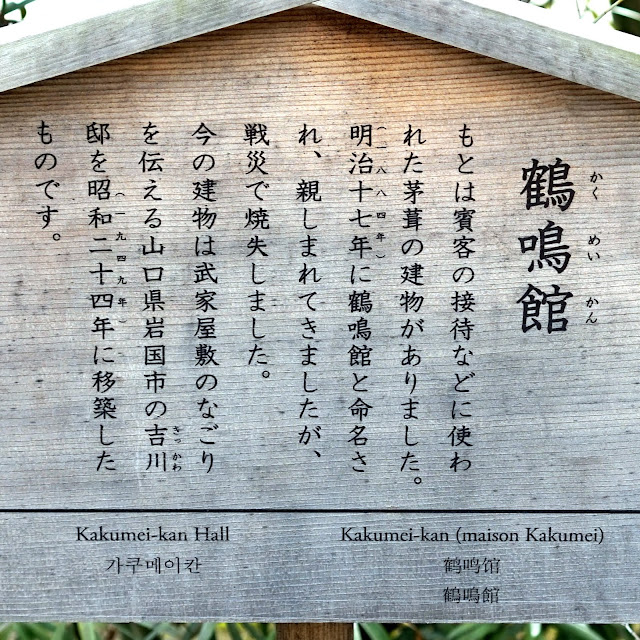 鶴鳴館
かく
めい
かん
もとは賓客の接待などに使わ
れた茅葺の建物がありました。
明治十七年に鶴鳴館と命名さ
（一八八四年）
れ、親しまれてきましたが、
戦災で焼失しました。
今の建物は武家屋敷のなごり
を伝える山口県岩国市の吉川
きっかわ
邸を昭和二十四年に移築した
（一九四九年）
ものです。
Kakumei-kan Hall
가쿠메이칸
Kakumei-kan (maison Kakumei)
鹤鸣馆
鶴鳴館